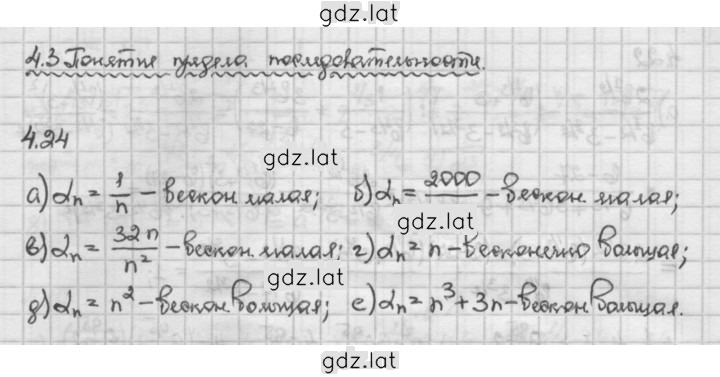 gdz.lat
4.3 Понятие предела последовательности.
4.24
gdz.lat
а) αn = 1/n – бескон. малая; б) αn = 2000/ – бескон. малая;
gdz.lat
в) αn = 32n/n² – бескон. малая; г) αn = n – бесконечно большая;
gdz.lat
д) αn = n² – бескон. большая; е) αn = n³ + 3n – бескон. большая.
gdz.lat